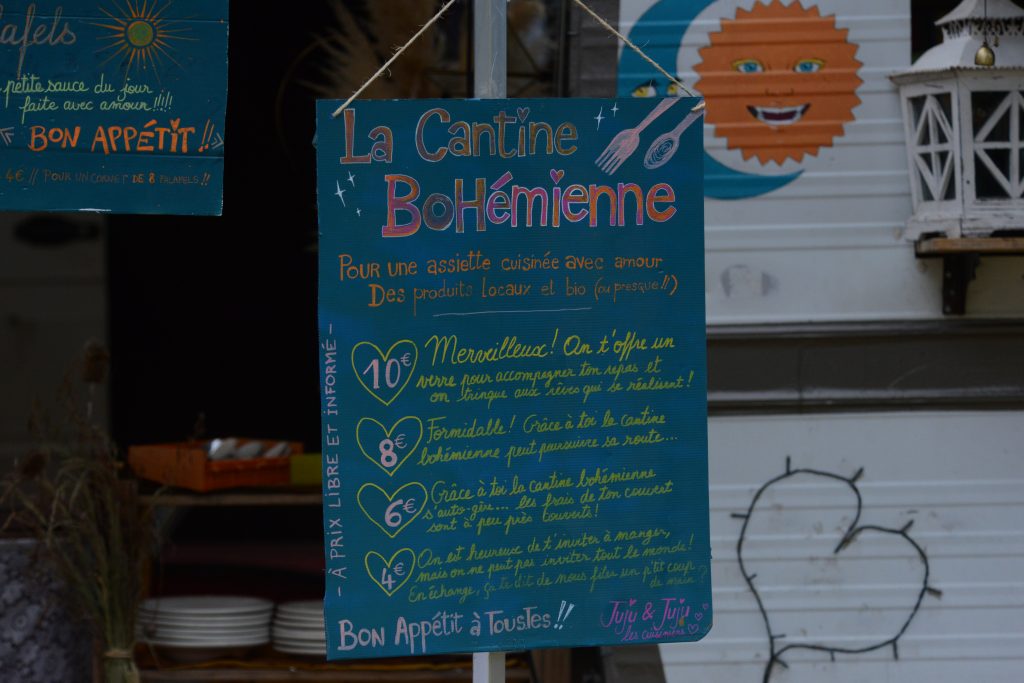 afels
petite sauce du jour
faite avec amour !!!!
« BON APPÉTIT !! »
4€ // POUR UN CORNET DE 8 FALAFELS !!
La Cantine
BoHémienne
Pour une assiette cuisinée avec amour
Des produits locaux et bio (ou presque !!)
- À PRIX LIBRE ET INFORMÉ -
10€ Merveilleux ! On t'offre un
verre pour accompagner ton repas et
on trinque aux rêves qui se réalisent !
8€ Formidable ! Grâce à toi la cantine
bohémienne peut poursuivre sa route...
6€ Grâce à toi la cantine bohémienne
s'auto-gère... les frais de ton couvert
sont à peu près couverts !
4€ On est heureux de t'inviter à manger,
mais on ne peut pas inviter tout le monde !
En échange, ça te dit de nous filer un p'tit coup
de main ?
Bon Appétit à TousTes !!
Juju & Juju
les cuisinières